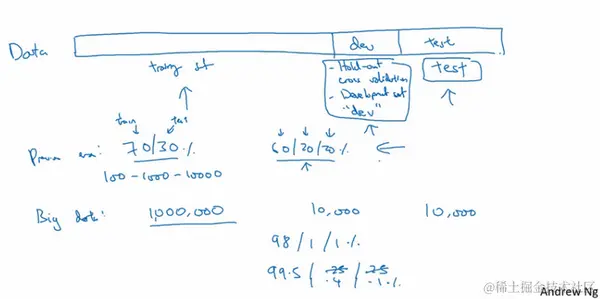 Data
dev
test
training set
- Hold-out
cross validation
- Development set
"dev"
test
train test
Previous era: 70/30 % 60/20/20 %
100 - 1000 - 10000
Big data: 1,000,000 10,000 10,000
98 / 1 / 1 %
99.5 / .25 / .25
.4 / .1 %
@稀土掘金技术社区
Andrew Ng